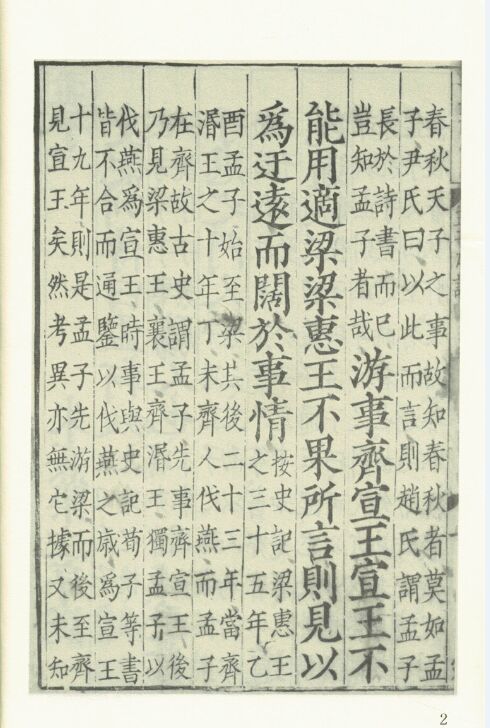 春秋天子之事故知春秋者莫如孟
子尹氏曰以此而言則趙氏謂孟子
長於詩書而已
豈知孟子者哉
游事齊宣王宣王不
能用適梁梁惠王不果所言則見以
爲迂遠而闊於事情
按史記梁惠王
之三十五年乙
酉孟子始至梁其後二十三年當齊
湣王之十年丁未齊人伐燕而孟子
在齊故古史謂孟子先事齊宣王後
乃見梁惠王襄王齊湣王獨孟子以
伐燕爲宣王時事與史記荀子等書
皆不合而通鑒以伐燕之歲爲宣王
十九年則是孟子先游梁而後至齊
見宣王矣然考異亦無它據又未知
2